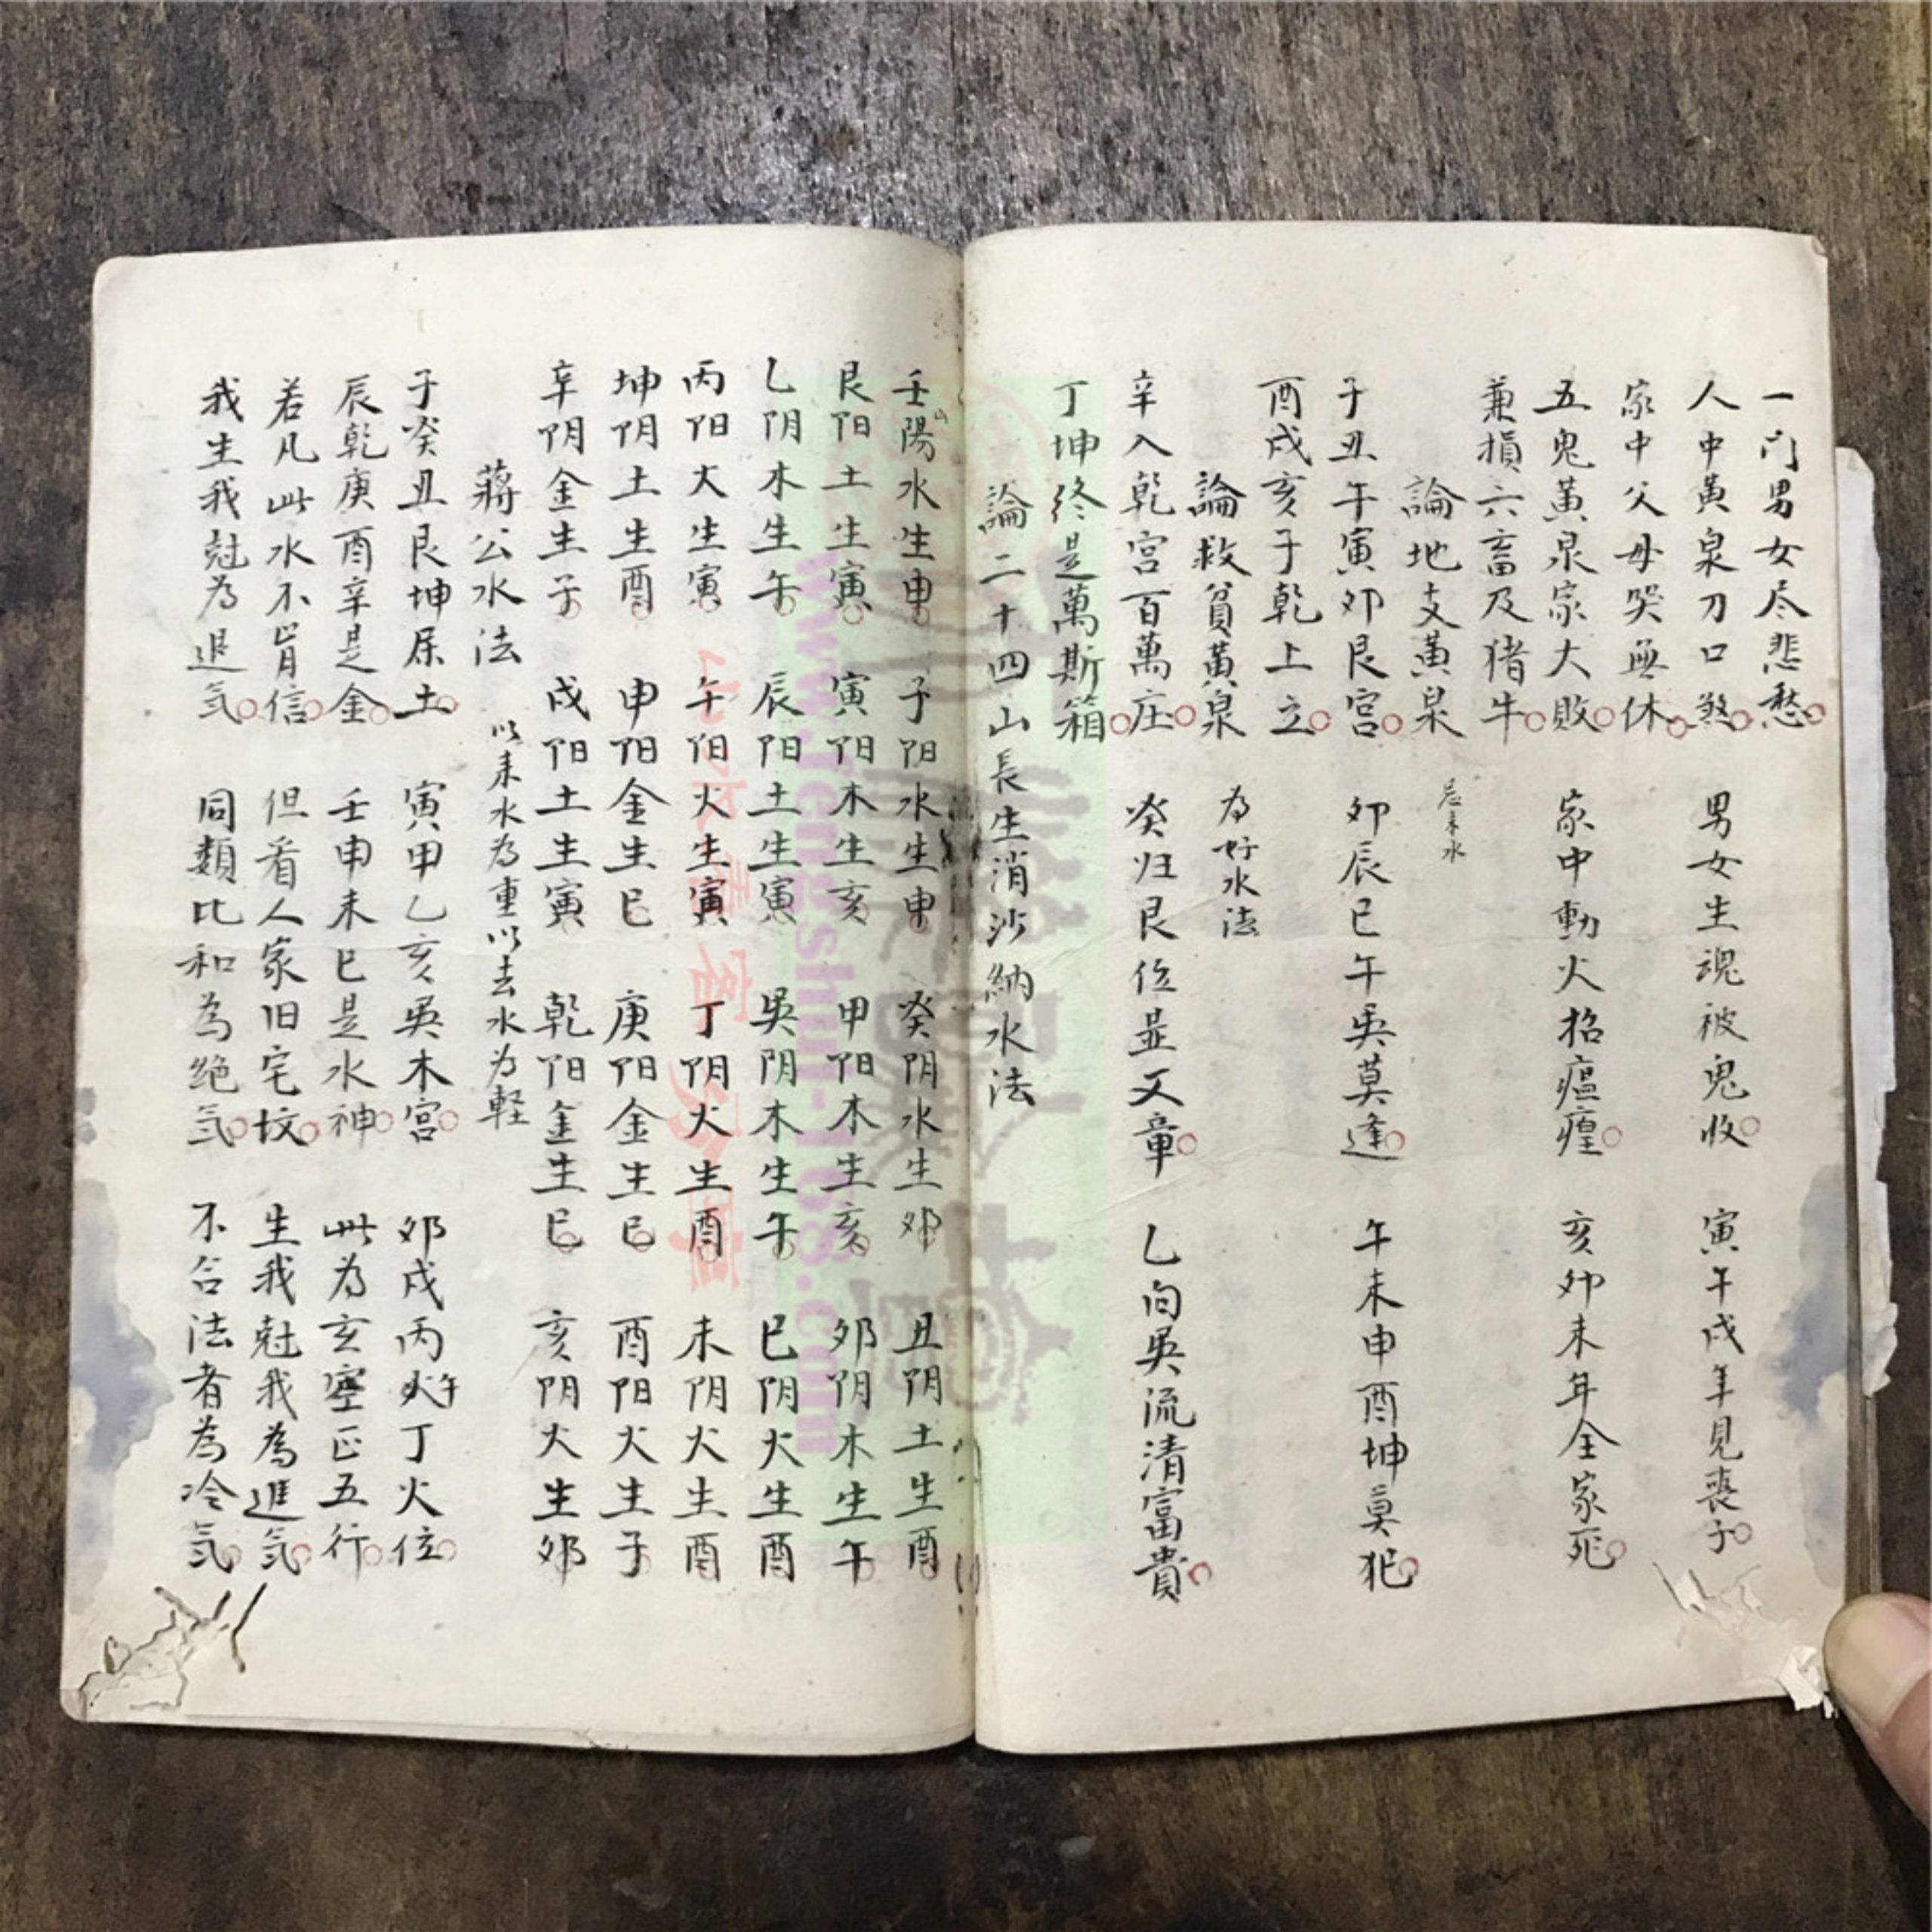 一门男女尽悲愁
人中黃泉刀口煞 男女生魂被鬼收 寅午戌年見喪子
家中父母哭無休
五鬼黃泉家大敗 家中動火招瘟瘟 亥卯未年全家死
兼損六畜及猪牛
論地支黃泉 忌来水
子丑午寅卯艮宮 卯辰巳午巽莫逢 午未申酉坤莫犯
酉戌亥子乾上立
論救貧黃泉 为好水法
辛入乾宮百萬庄 癸归艮位並文章 乙向巽流清富貴
丁坤终是萬斯箱
論二十四山長生消沙納水法
壬山陽水生申 子阳水生申 癸阴水生卯 丑阴土生酉
艮阳土生寅 寅阳木生亥 甲阳木生亥 卯阴木生午
乙阴木生午 辰阳土生寅 巽阴木生午 巳阴火生酉
丙阳火生寅 午阳火生寅 丁阴火生酉 未阴火生酉
坤阴土生酉 申阳金生巳 庚阳金生巳 酉阳火生子
辛阴金生子 戌阳土生寅 乾阳金生巳 亥阴火生卯
蔣公水法 以来水为重以去水为軽
子癸丑艮坤居土 寅甲乙亥巽木宮 卯戌丙午丁火位
辰乾庚酉辛是金 壬申未巳是水神 此为玄空正五行
若凡此水不肯信 但看人家旧宅坟 生我尅我為進気
我生我尅为退気 同類比和為绝気 不合法者為冷気
www.fengshui-168.com